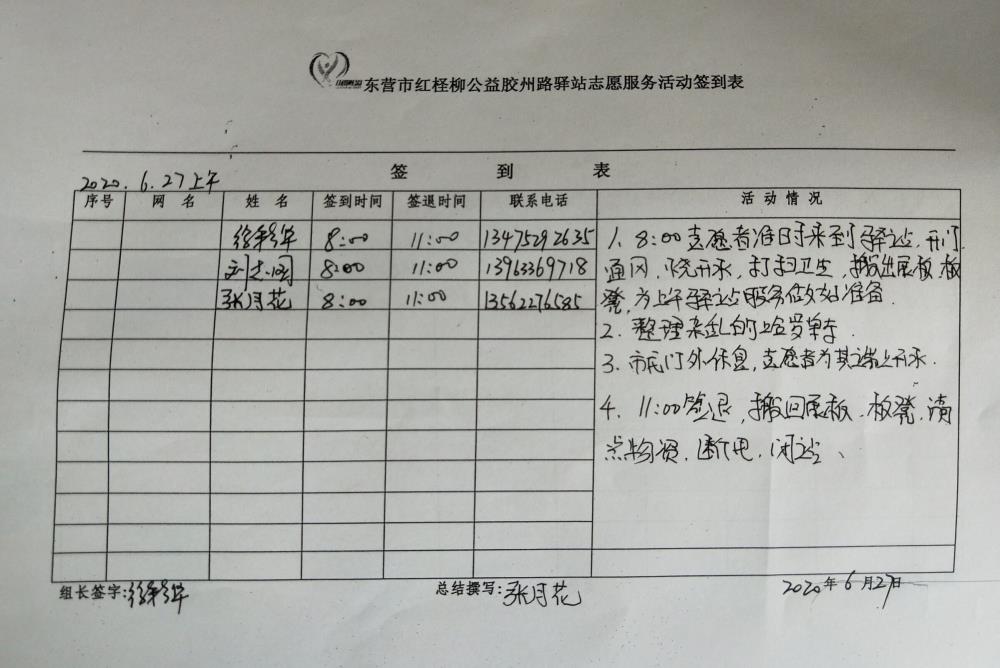 东营市红柽柳公益胶州路驿站志愿服务活动签到表
签 到 表
2020.6.27上午
序号 网 名 姓 名 签到时间 签退时间 联系电话 活动情况
8:00 11:00 13475292635
8:00 11:00 13963369718
张月花 8:00 11:00 13562276585
1. 8:00志愿者准时来到驿站,开门
通风,烧开水,打扫卫生,搬出展板、板
凳,为上午驿站服务做好准备.
2. 整理杂乱的哈罗单车.
3. 市民门外休息,志愿者为其端上开水.
4. 11:00签退,搬回展板、板凳,清
点物资、断电、闭站、
组长签字: 总结撰写:张月花 2020年6月27日